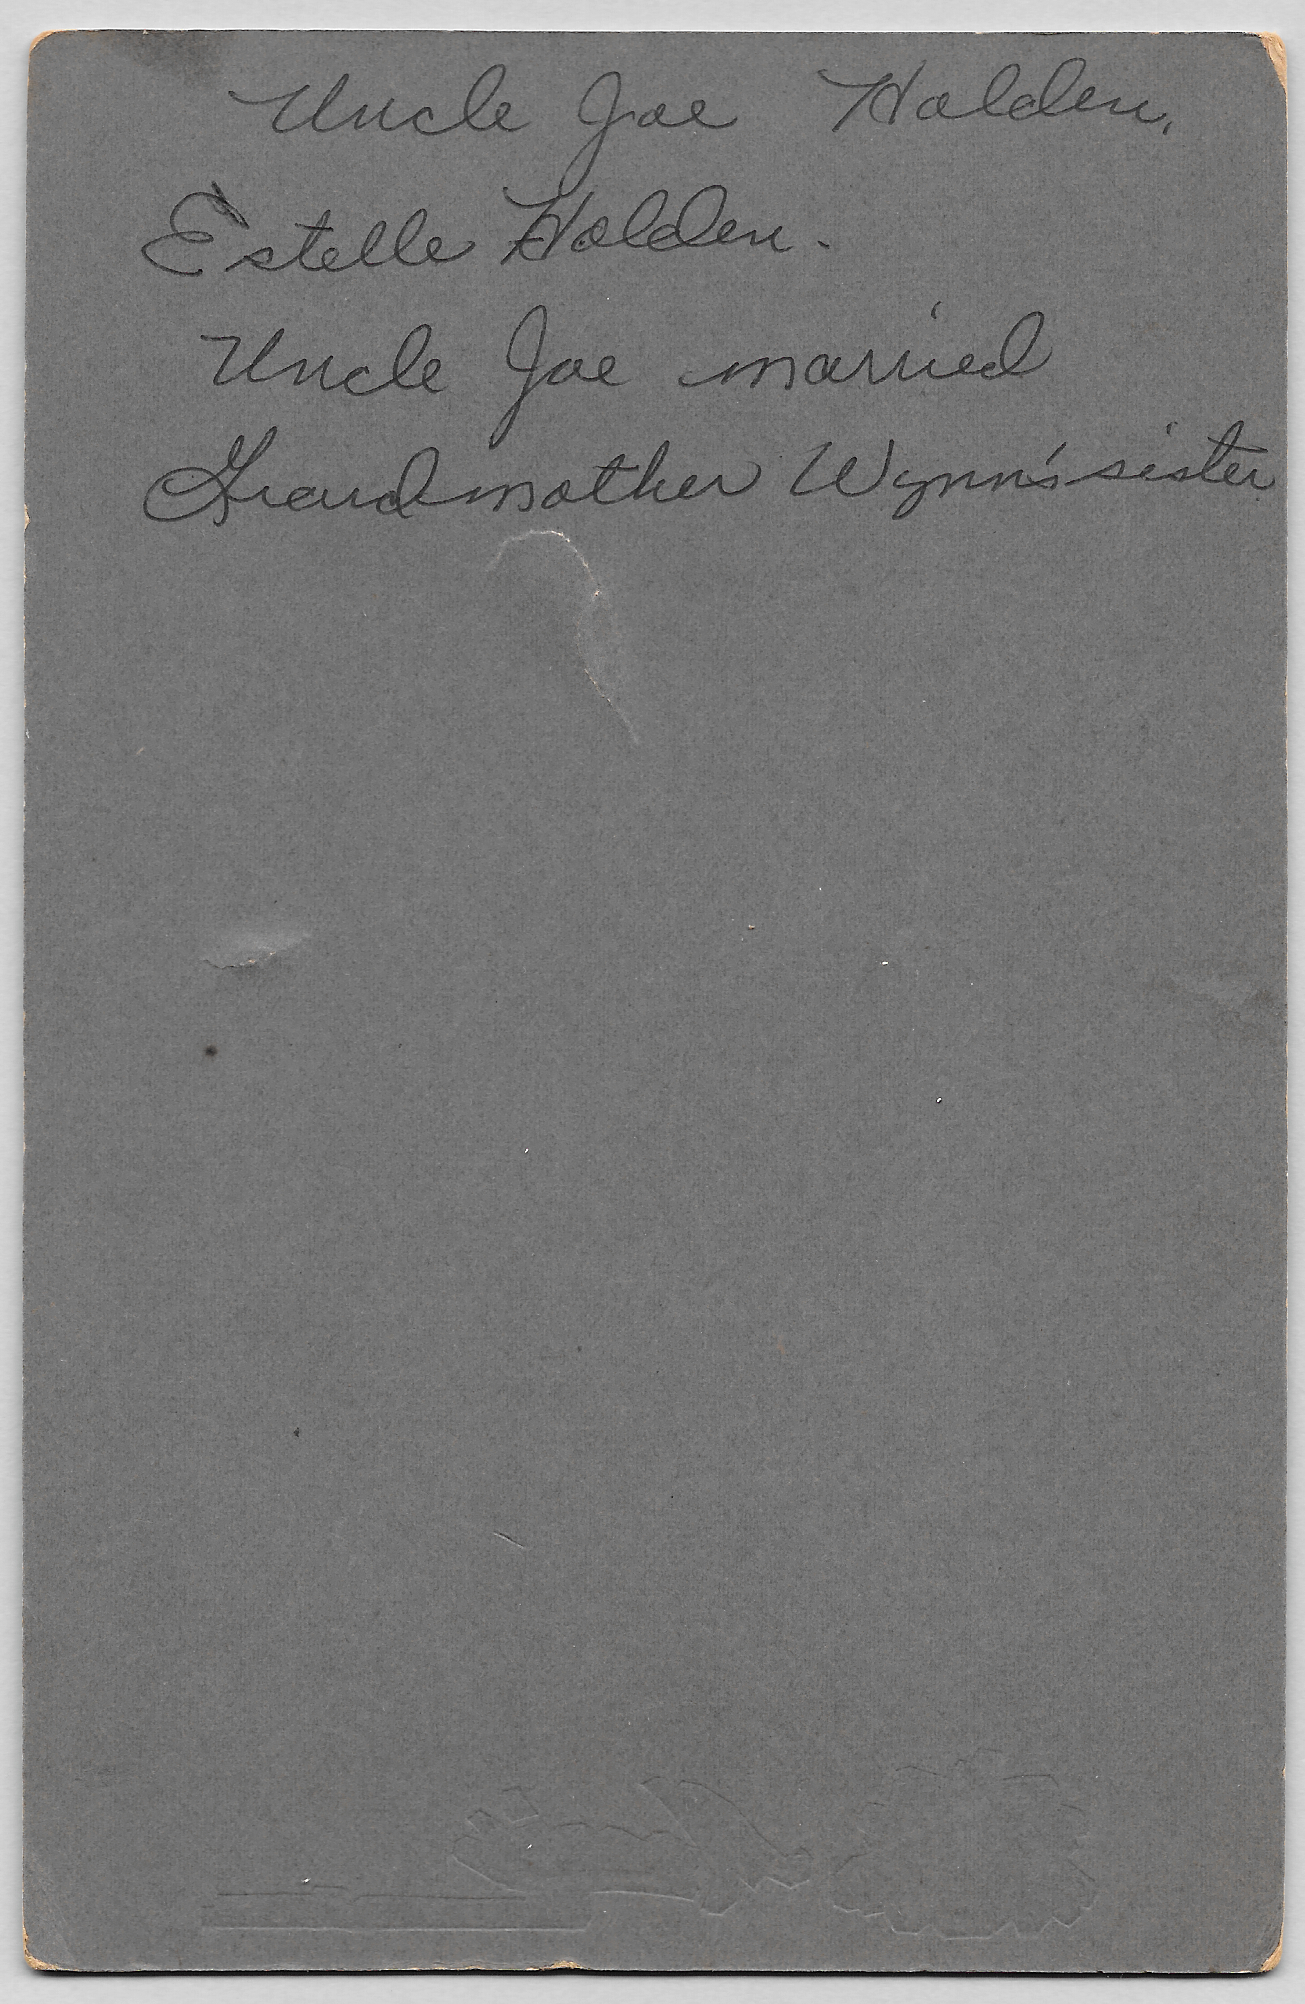 Uncle Joe Holden.
Estelle Holden.
Uncle Joe married
Grandmother Wynn's sister